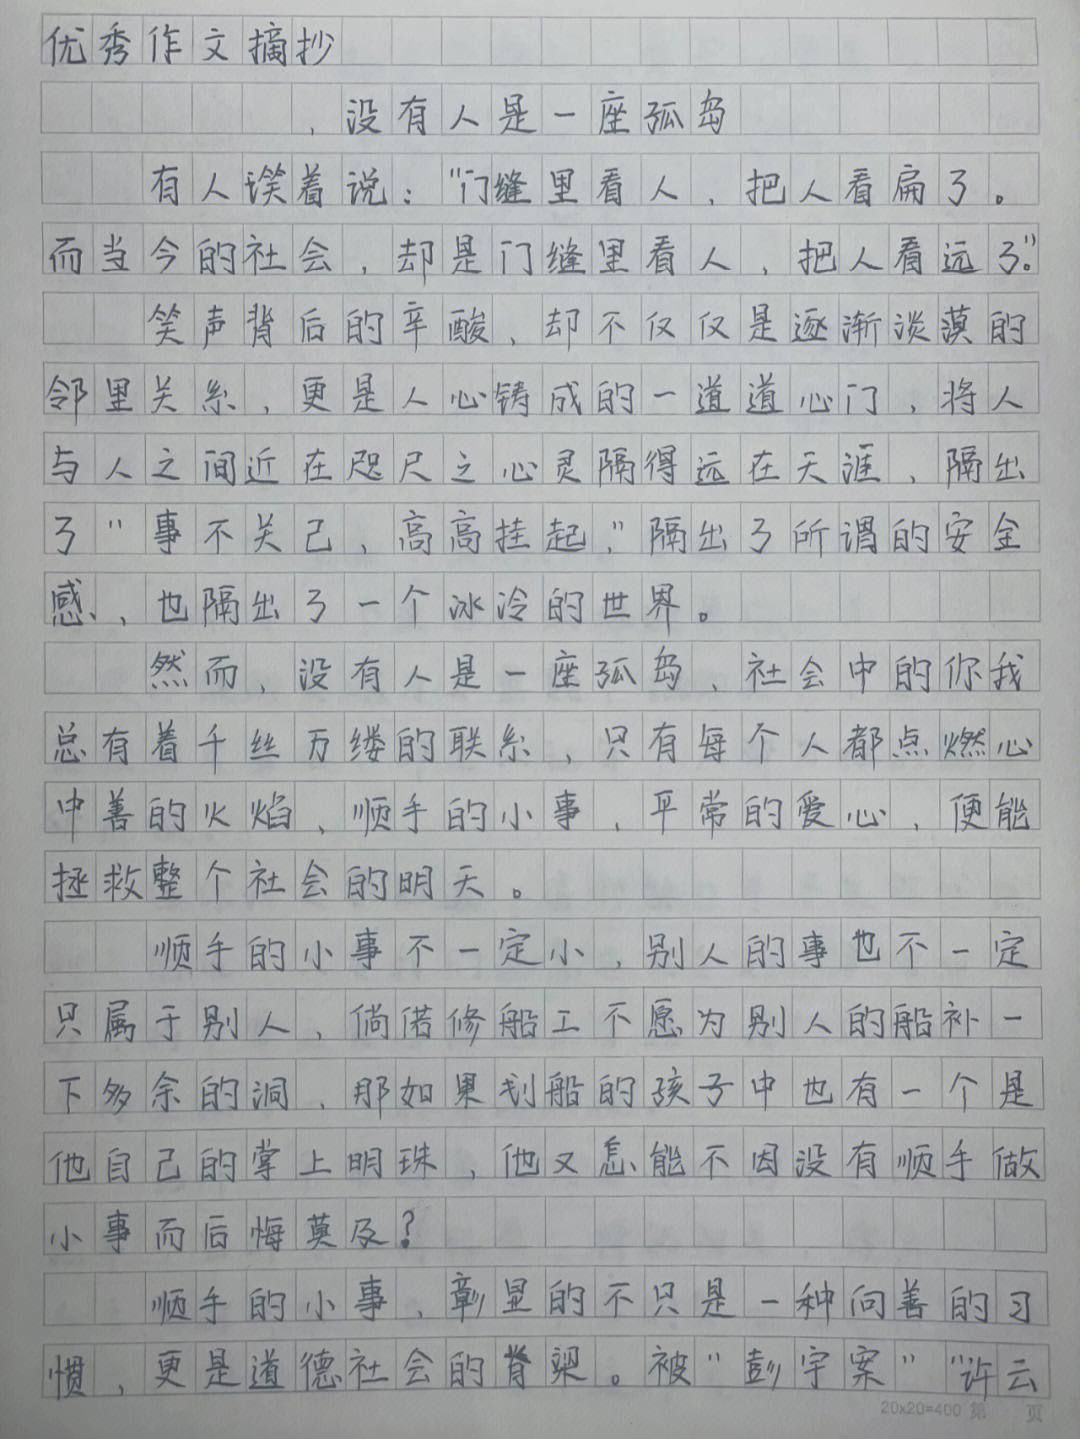 优秀作文摘抄
，没有人是一座孤岛
有人谈笑着说：“门缝里看人，把人看扁了。
而当今的社会，却是门缝里看人，把人看远了。”
笑声背后的辛酸，却不仅仅是逐渐淡漠的
邻里关系，更是人心铸成的一道道心门，将人
与人之间近在咫尺之心灵隔得远在天涯，隔出
了“事不关己，高高挂起，”隔出了所谓的安全
感、，也隔出了一个冰冷的世界。
然而，没有人是一座孤岛，社会中的你我
总有着千丝万缕的联系，只有每个人都点燃心
中善的火焰，顺手的小事，平常的爱心，便能
拯救整个社会的明天。
顺手的小事不一定小，别人的事也不一定
只属于别人，倘偌修船工不愿为别人的船补一
下多余的洞，那如果划船的孩子中也有一个是
他自己的掌上明珠，他又怎能不因没有顺手做
小事而后悔莫及？
顺手的小事，彰显的不只是一种向善的习
惯，更是道德社会的脊梁。被“彭宇案”“许云
20x20=400 第 页